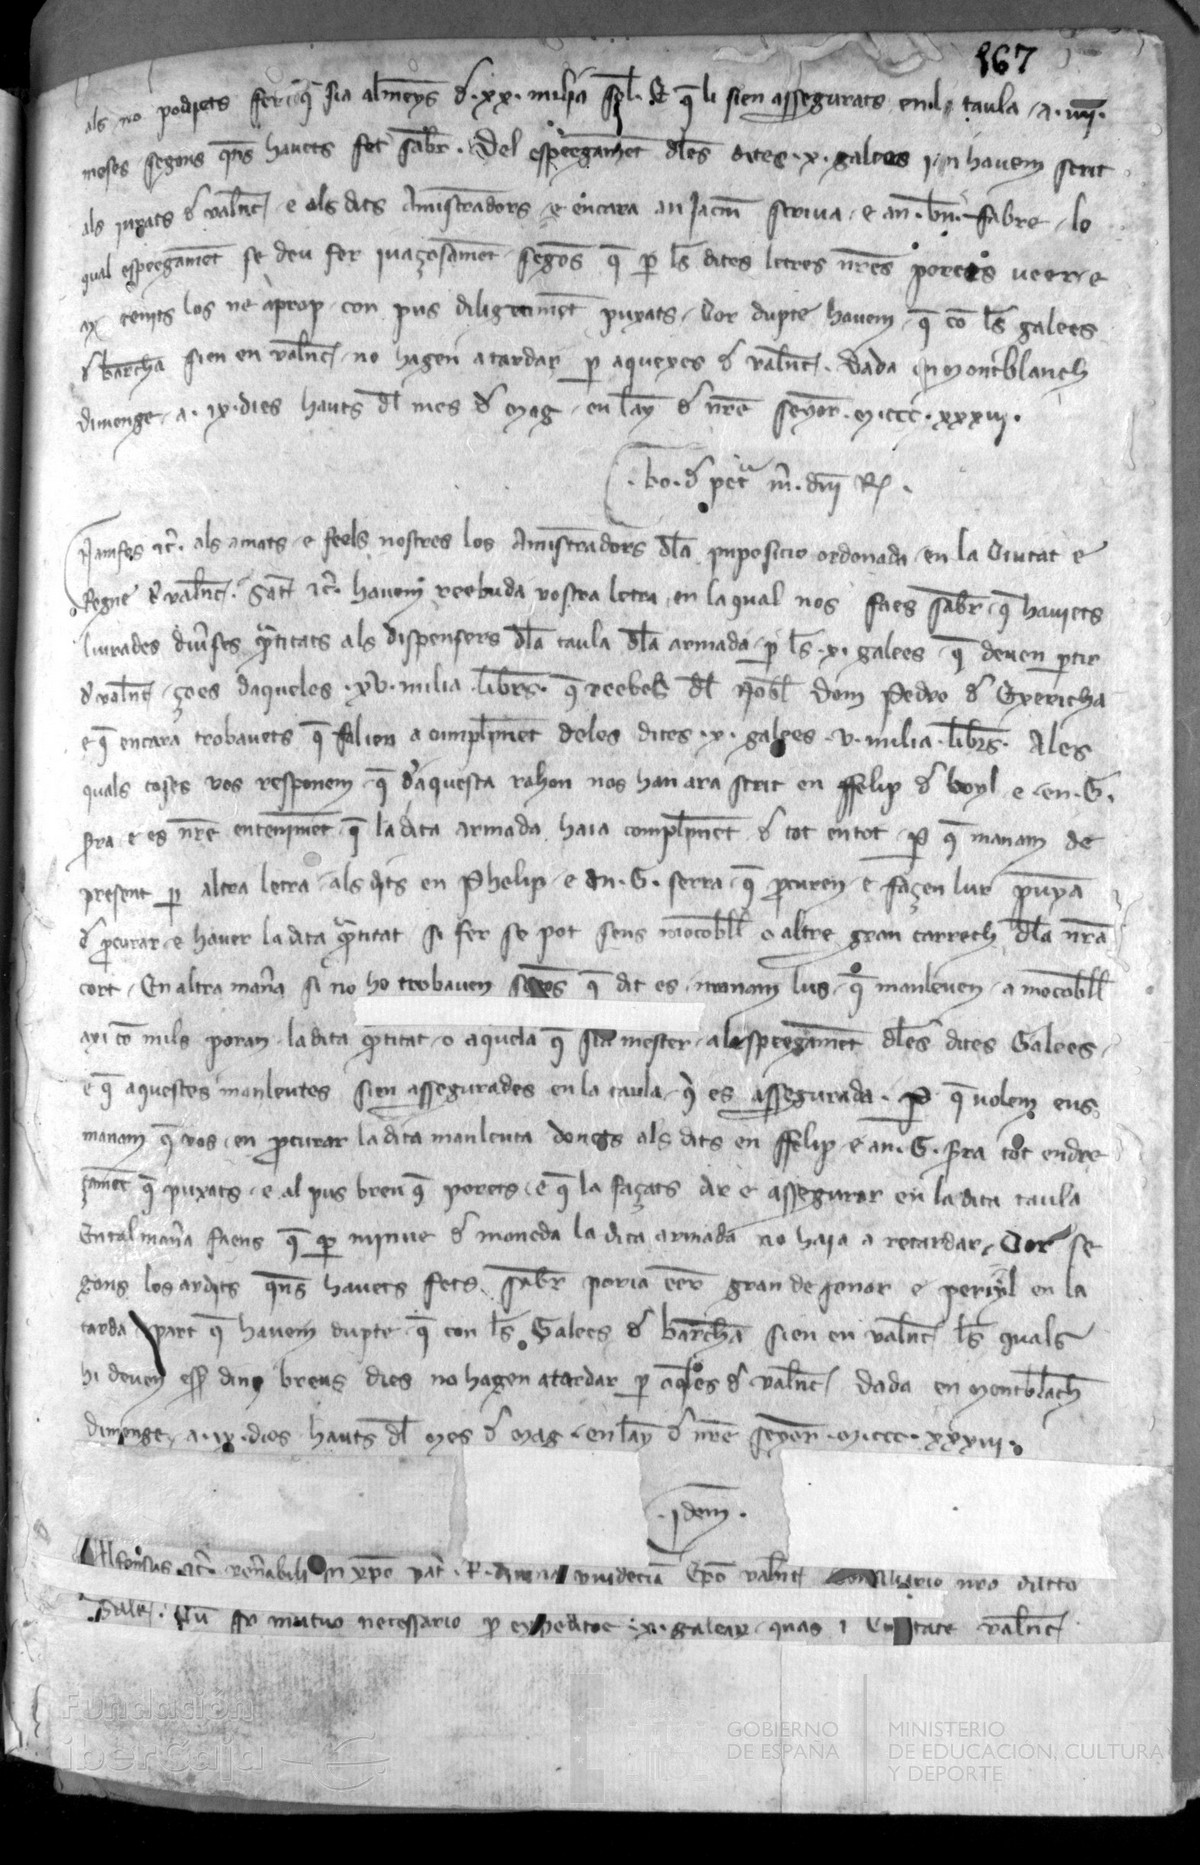 167
als no podiets fer q̄ sia almēys d .xx. milia sol. Et q̄ li sien assegurats en la taula a .iiii.
meses segons q̄ns havets fet sabr̄. Del espeegamēt dl̄es dites .x. galees i n havem scrit
als jurats d valn̄c e als dits Amīstradors e encara an Jacm̄ scriva e an .bn̄. fabre lo
qual espeegamēt se deu fer ivaçosamēt segōs q̄ p̄ ls̄ dites letres nr̄es porets veer e
ax tenits los ne aprop con pus diligentmēt puxats Cor dupte havem q̄ cō ls̄ galees
d barchn̄a sien en valn̄c no hagen a tardar p̄ aquexes d valn̄c. Dada en Montblanch
dimenge .a. ix. dies hauts dl̄ mes d Mag en lay d nr̄e seyor .M.ccc. xxxiii.
bo. d pet m̄. dn̄i R̄
Namfos ⁊c̄. als amats e feels nostres los Amīstradors dl̄a imposicio ordonada en la Ciutat e
Regne d valn̄c. Sal̄t ⁊c̄. havem reebuda vostra letra en la qual nos faes sabr̄ q̄ haviets
liurades divs̄es q̄ntitats als dispensers dl̄a taula dl̄a armada p̄ ls̄ .x. galees q̄ deven p̄tir
d valn̄c ço es daqueles .xv. milia .libr̄s. q̄ reebes dl̄ nobl̄ Dom Pedro d Exericha
e q̄ encara trobavets q̄ falien a complimēt deles dites .x. galees .v. milia .libr̄s. Ales
quals coses vos responem q̄ daquesta rahon nos han ara scrit en ffelip d boyl e en .G.
s̄ra e es nr̄e enteniment q̄ la dita armada haia complimēt d tot en tot p̄ q̄ manam de
present p̄ altra letra als dits en Phelip e an .G. serra q̄ p̄curen e façen lur punya
d p̄curar e haver la dita q̄ntitat si fer se pot sens mocobl̄l o altre gran carrech dl̄a nr̄a
cort En altra man̄a si no ho trobaven sens q̄ dit es manam lus q̄ manleven a mocobl̄l
axi cō mils poran la dita q̄ntitat o aquela q̄ sia mester al espeegamēt dl̄es dites Galees
e q̄ aquestes manleutes sien assegurades en la taula q̄ es assegurada. P̄ q̄ volem eus
manam q̄ vos en p̄curar la dita manleuta donets als dits en ffelip e an .G. s̄ra tot endre
çamēt q̄ puxats e al pus breu q̄ porets e q̄ la façats dir e assegurar en la dita taula
En tal man̄a faens q̄ p̄ minve d moneda la dita armada no haia a retardar Cor se
gons los ardits q̄ns havets fets sabr̄ poria eer gran desonor e perijl en la
tarda part q̄ havem dupte q̄ con ls̄ Galees d barchn̄a sien en valn̄c ls̄ quals
hi deven ess̄ dins breus dies no hagen a tardar p̄ aql̄es d valn̄c Dada en Montblāch
dimenge .a. ix. dies hauts dl̄ mes d Mag en lay d nr̄e seyor .M.ccc. xxxiii.
Idem.
Alfonsus ⁊c̄. ven̄abili in xp̄o pat̄ .R. divina p̄videcia Ep̄o valn̄c Consiliario nro dilcto
Salt̄. Cū sr̄ mutuo necessario p̄ expeditoe .x. galear quas i Civitate valn̄c
Fundación
iberCaja
GOBIERNO
DE ESPAÑA
MINISTERIO
DE EDUCACIÓN, CULTURA
Y DEPORTE